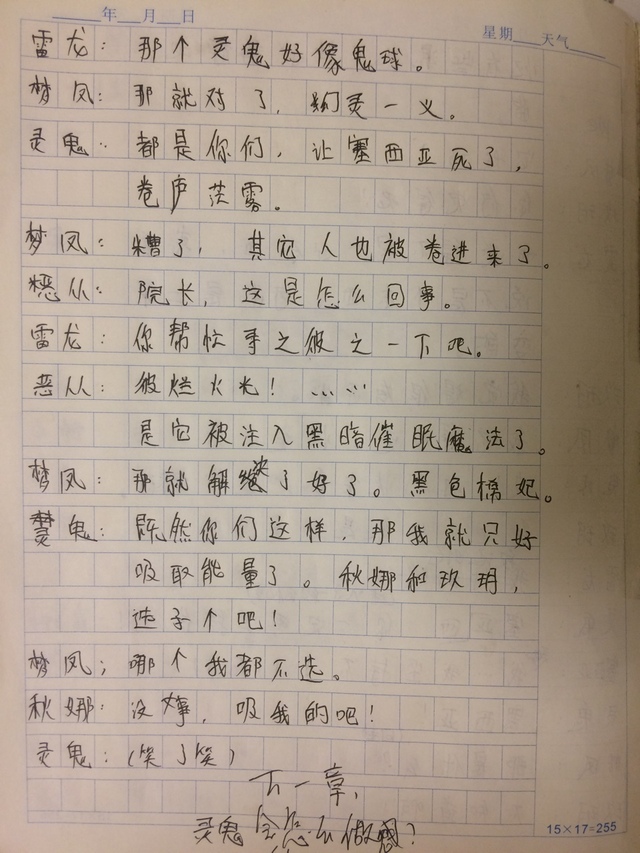 年 月 日
星期 天气
雷龙：那个灵鬼好像鬼球。
梦凤：那就对了，幻灵一义。
灵鬼：都是你们，让塞西亚死了，
卷庐茫雾。
梦凤：糟了，其它人也被卷进来了。
恶从：院长，这是怎么回事。
雷龙：你帮忙手之彼之一下吧。
恶从：彼烂火光！……
是它被注入黑暗催眠魔法了。
梦凤：那就解决了好了。黑色棉妃。
灵鬼：既然你们这样，那我就只好
吸取能量了。秋娜和玖玥，
选子个吧！
梦凤；哪个我都不选。
秋娜：没事，吸我的吧！
灵鬼：(笑了笑)
下一章，
灵鬼会怎么做？
15×17=255